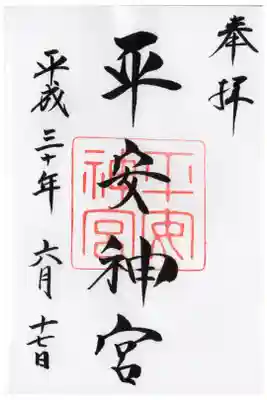 奉拝
平安神宮
平安
神宮
平成三十年 六月 十七日